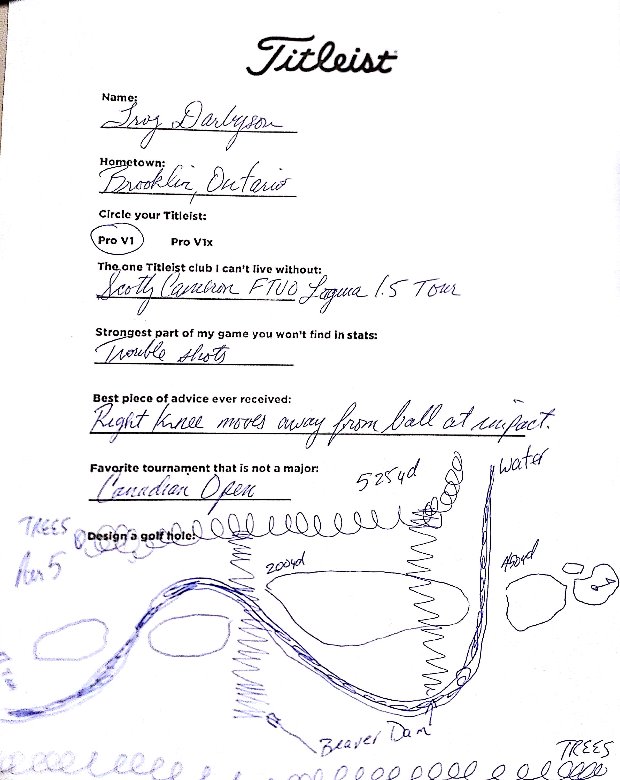 Titleist
Name:
Troy Darbyson
Hometown:
Brooklin, Ontario
Circle your Titleist:
Pro V1 Pro V1x
The one Titleist club I can't live without:
Scotty Cameron FTUO Laguna 1.5 Tour
Strongest part of my game you won't find in stats:
Trouble shots
Best piece of advice ever received:
Right knee moves away from ball at impact.
Favorite tournament that is not a major:
Canadian Open
525yd
Water
TREES
Design a golf hole:
Par 5
200yd
450yd
Beaver Dam
TREES